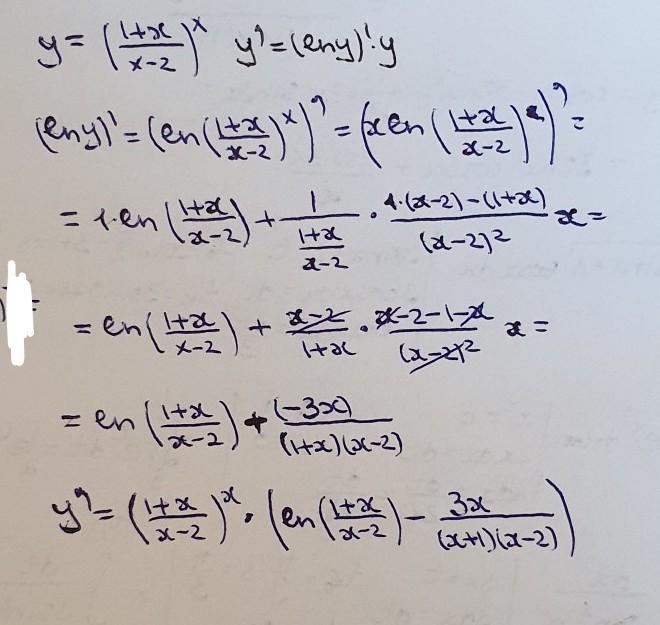 y = ((1+x)/(x-2))^x  y' = (ln y)'·y
(ln y)' = (ln((1+x)/(x-2))^x)' = (x ln((1+x)/(x-2)))' =
= 1·ln((1+x)/(x-2)) + 1/((1+x)/(x-2)) · (1·(x-2)-(1+x))/(x-2)² x =
= ln((1+x)/(x-2)) + (x-2)/(1+x) · (x-2-1-x)/(x-2)² x =
= ln((1+x)/(x-2)) + (-3x)/((1+x)(x-2))
y' = ((1+x)/(x-2))^x · (ln((1+x)/(x-2)) - 3x/((x+1)(x-2)))